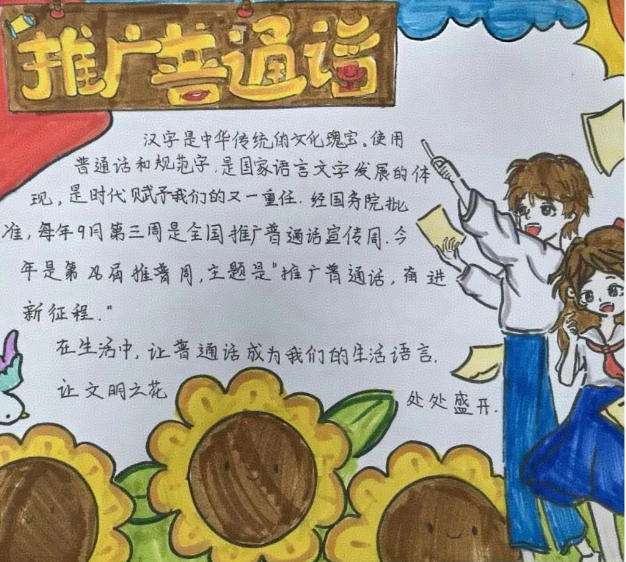 推广普通话
汉字是中华传统的文化瑰宝、使用
普通话和规范字.是国家语言文字发展的体
现，是时代赋予我们的又一重任.经国务院批
准，每年9月第三周是全国推广普通话宣传周.今
年是第26届推普周,主题是"推广普通话，奋进
新征程."
在生活中,让普通话成为我们的生活语言.
让文明之花 处处盛开.